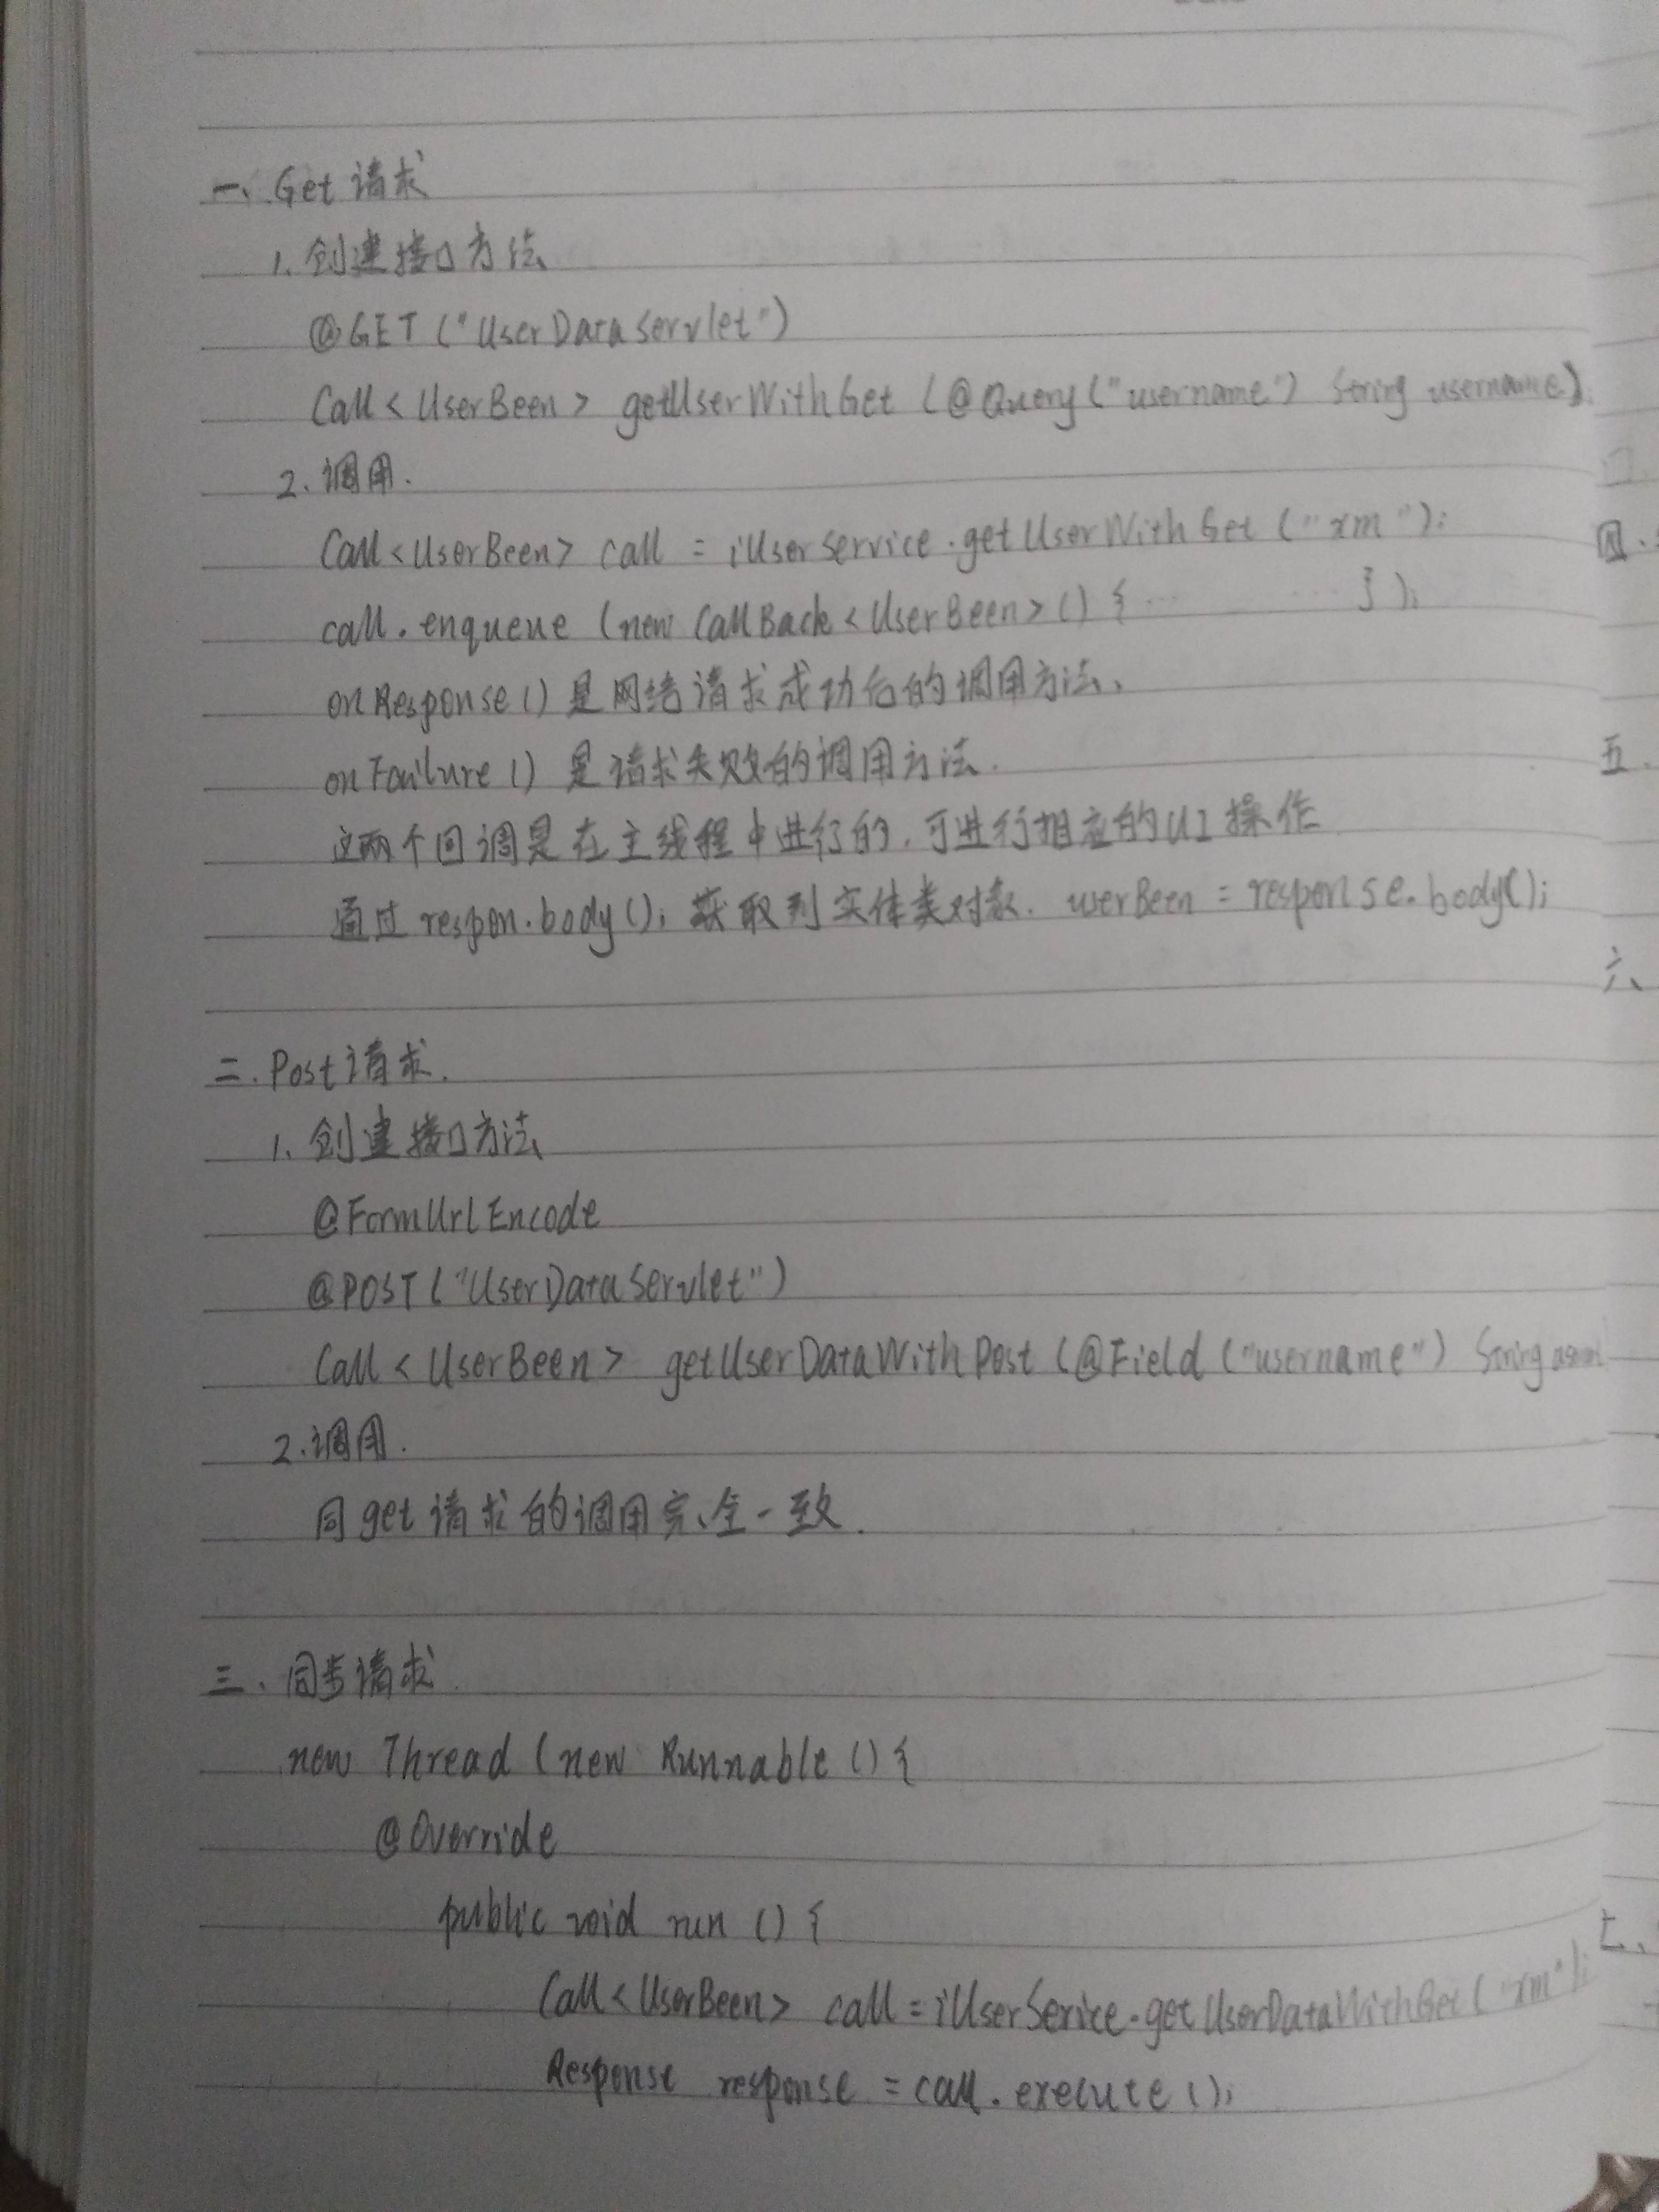 一、Get 请求
1. 创建接口方法
@GET ("UserDataServlet")
Call < UserBeen > getUserWithGet (@Query ("username") String username)
2. 调用.
Call<UserBeen> call = iUserService.getUserWithGet ("xm");
call.enqueue (new CallBack<UserBeen>() { ... ... });
onResponse () 是网络请求成功后的调用方法、
onFailure () 是请求失败的调用方法.
这两个回调是在主线程中进行的, 可进行相应的UI操作
通过 respon.body(); 获取到实体类对象. userBeen = response.body();
二. Post请求.
1. 创建接口方法
@FormUrlEncode
@POST ("UserDataServlet")
Call < UserBeen > getUserDataWithPost (@Field ("username") String
2.调用.
同get请求的调用完全一致.
三. 同步请求.
new Thread (new Runnable () {
@Override
public void run () {
Call<UserBeen> call = iUserSerice.getUserDataWithGet ("xm");
Response response = call.execute ();
四.
五.
六、
七、